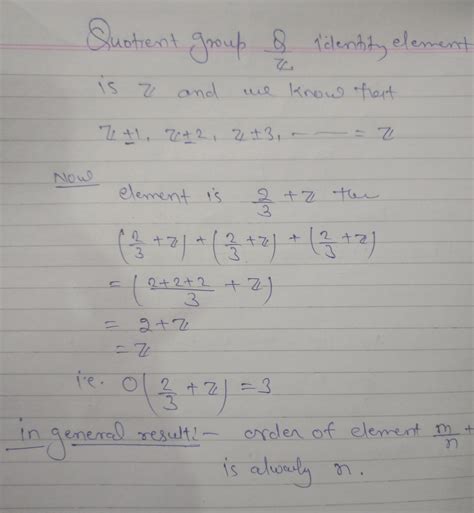 Quotient group Q/Z identity element
is Z and we know that
Z±1, Z±2, Z±3, ------ = Z
Now
element is 2/3 + Z the
(2/3 + Z) + (2/3 + Z) + (2/3 + Z)
= (2+2+2/3 + Z)
= 2+Z
= Z
i.e. O(2/3 + Z) = 3
in general result:- order of element m/n +
is alwaly n.